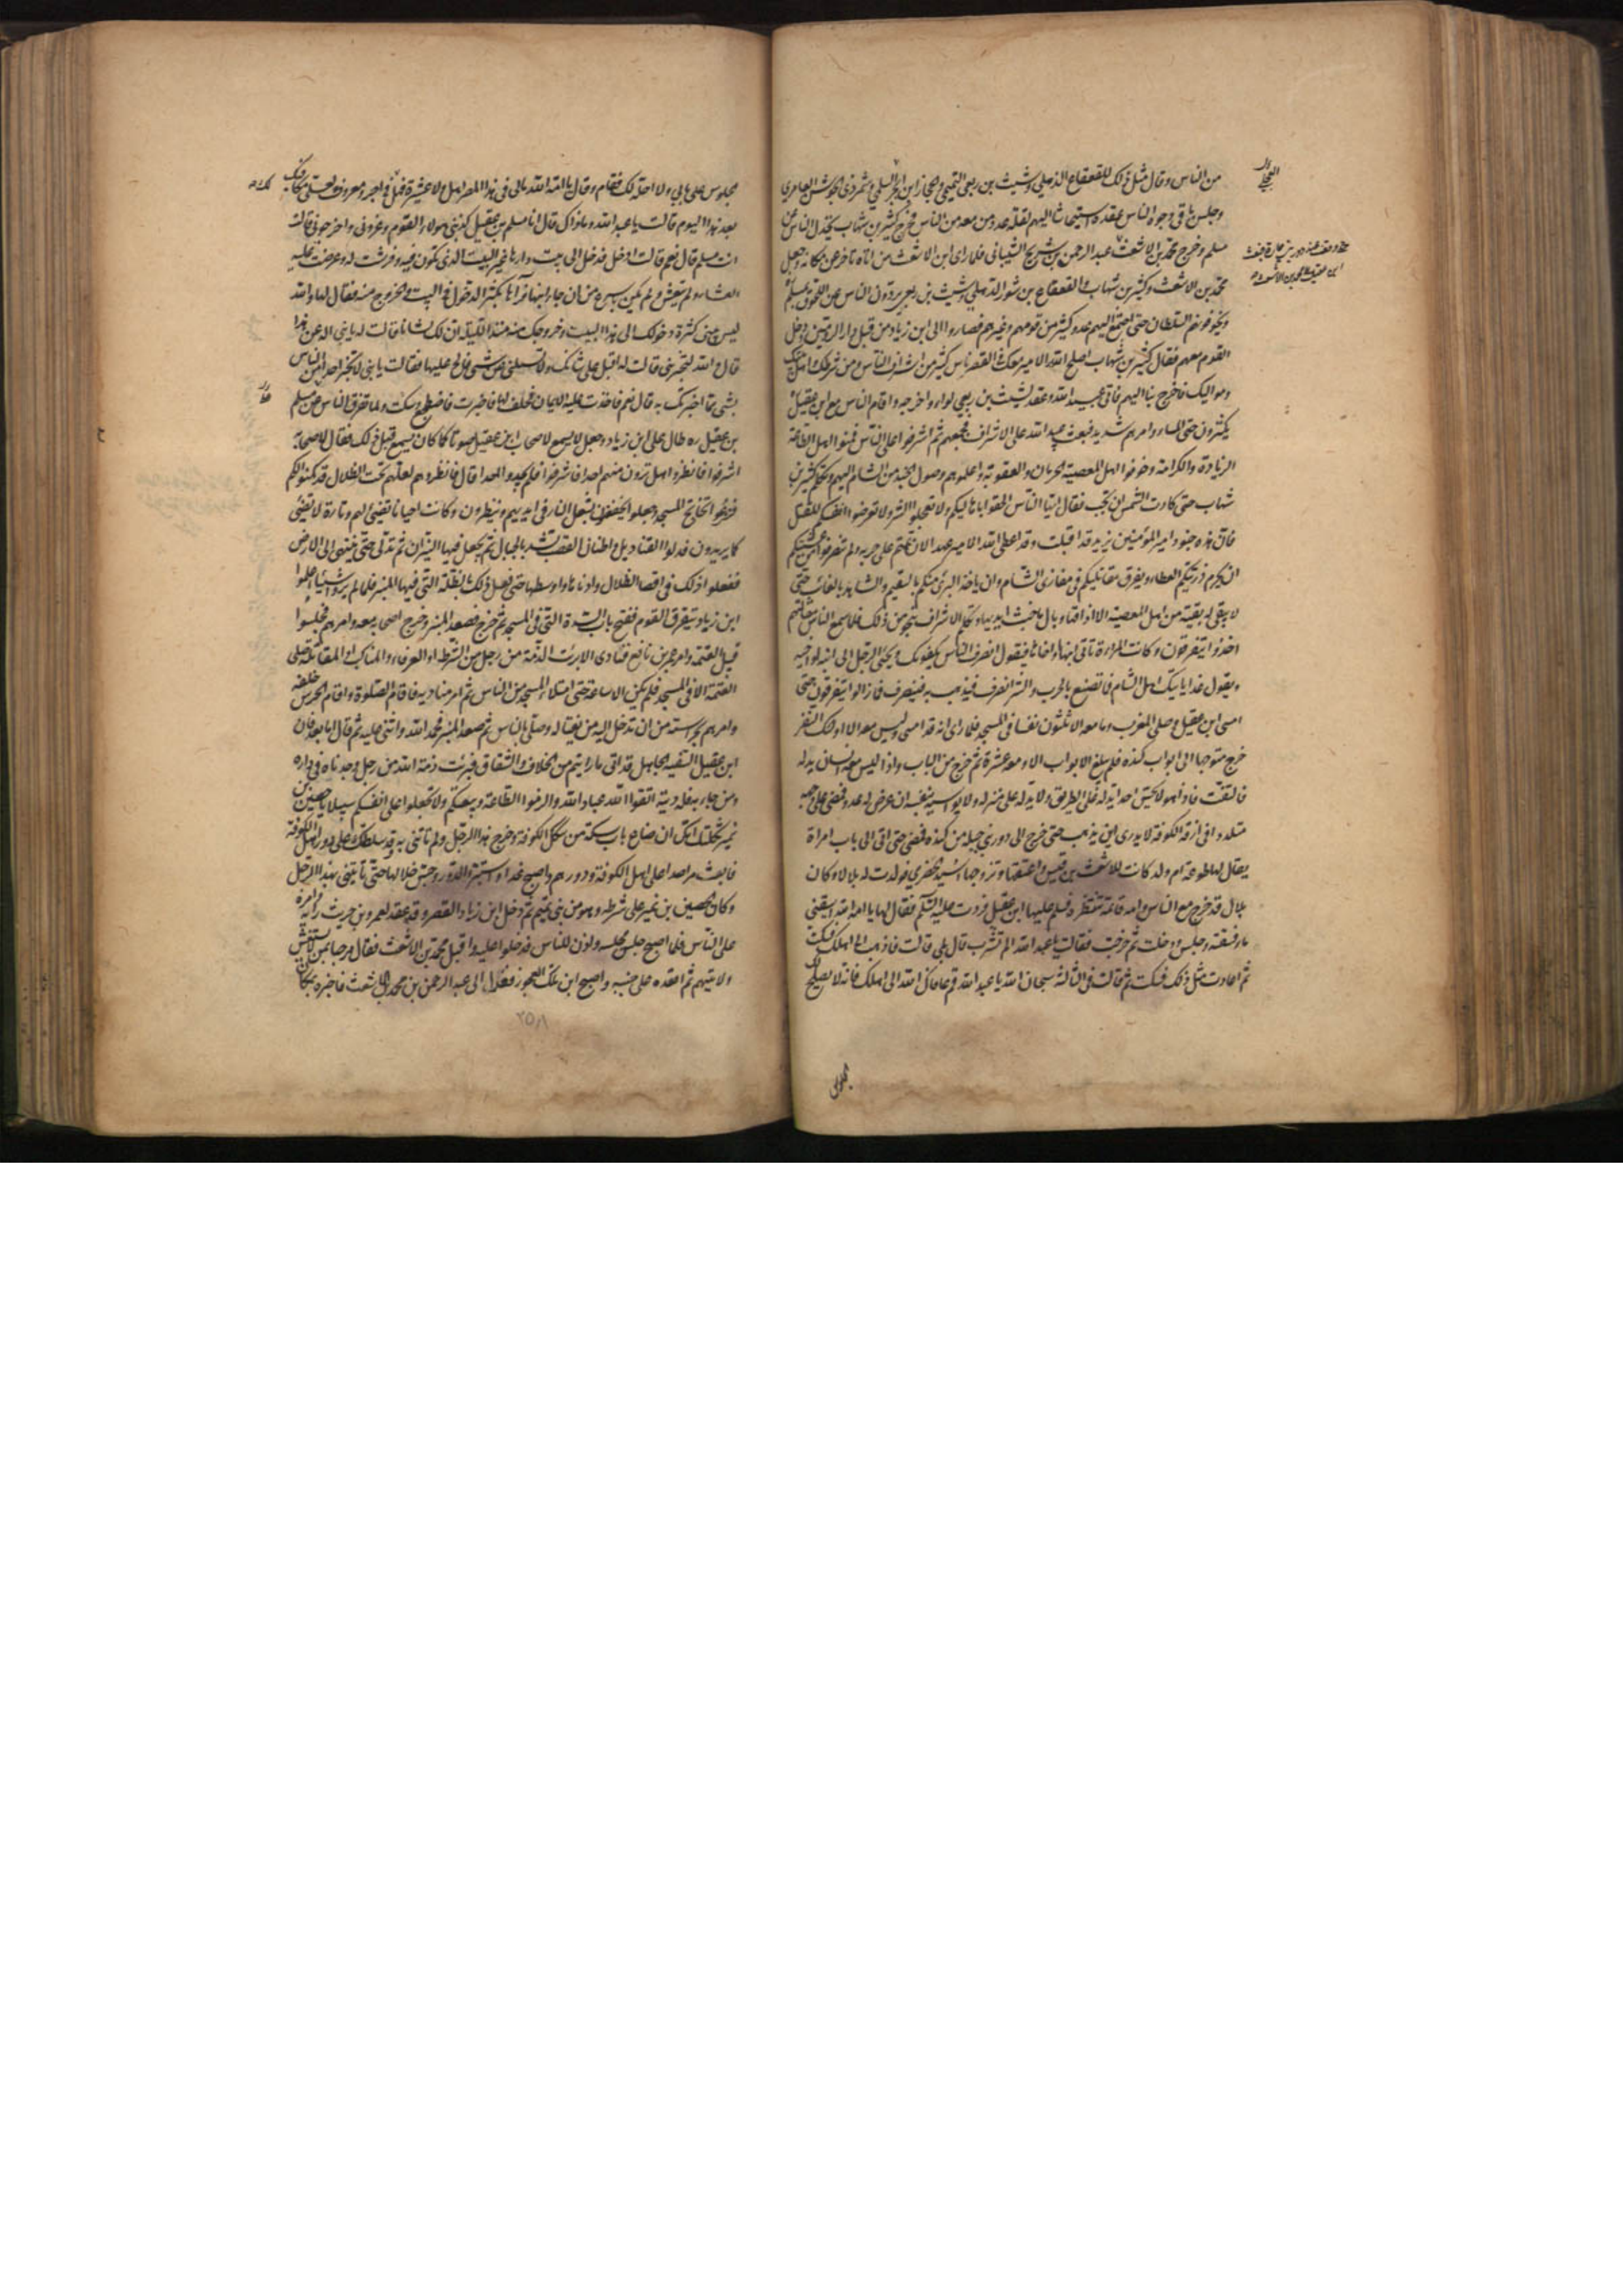 من الناس وقال مثل ذلك للقعقاع الذهلي وشبث بن ربعي التميمي وحجار ابن ابجر السلمي وشمر ذي الجوشن العامري
وحبس باقي وجوه الناس عنده استيحاشا اليهم لقلة عدد من معه من الناس فخرج كثير بن شهاب يخذل الناس عن
مسلم وخرج محمد بن الاشعث عبد الرحمن بن شريح الشيباني فلما راى ابن الاشعث من اتاه تاخر عن مكانه وجعل
محمد بن الاشعث وكثير بن شهاب والقعقاع بن شور الذهلي وشبث بن ربعي يردون الناس عن اللحوق بمسلم
ويخوفونهم السلطان حتى اجتمع اليهم عدد كثير من قومهم وغيرهم فصاروا الى ابن زياد من قبل دار الروميين ودخل
القوم معهم فقال كثير بن شهاب اصلح الله الامير معك في القصر ناس كثير من اشراف الناس ومن شرطك واهل بيتك
ومواليك فاخرج بنا اليهم فابى عبيد الله وعقد لشبث بن ربعي لواء واخرجه واقام الناس مع ابن عقيل
يكثرون حتى المساء وامرهم شديد فبعث عبيد الله على الاشراف فجمعهم ثم اشرفوا على الناس فمنوا اهل الطاعة
الزيادة والكرامة وخوفوا اهل المعصية الحرمان والعقوبة واعلموهم وصول الجند من الشام اليهم وتكلم كثير بن
شهاب حتى كادت الشمس ان تجب فقال ايها الناس الحقوا باهاليكم ولا تعجلوا الشر ولا تعرضوا انفسكم للقتل
فان هذه جنود امير المؤمنين يزيد قد اقبلت وقد اعطى الله الامير عهدا لان تممتم على حربه ولم تنصرفوا من عشيتكم
ان يحرم ذريتكم العطاء ويفرق مقاتليكم في مغازي الشام وان ياخذ البرئ منكم بالسقيم والشاهد بالغائب حتى
لا يبقى له بقية من اهل المعصية الا اذاقها وبال ما جنت ايديها وتكلم الاشراف بنحو من ذلك فلما سمع الناس مقالتهم
اخذوا يتفرقون وكانت المراءة تأتي ابنها واخاها فيقول انصرف الناس يكفونك ويجئ الرجل الى ابنه واخيه
ويقول غدا ياتيك اهل الشام فما تصنع بالحرب والشر انصرف فيذهب به فينصرف فما زالوا يتفرقون حتى
امسى ابن عقيل وصلى المغرب وما معه الا ثلثون نفسا في المسجد فلما راى انه قد امسى وليس معه الا اولئك النفر
خرج متوجها الى ابواب كنده فلم يبلغ الابواب الا ومعه عشرة ثم خرج من الباب واذا ليس معه انسان يدله
فالتفت فاذا هو لا يحس احدا يدله على الطريق ولا يدله على منزله ولا يواسيه بنفسه ان عرض له عدو فمضى على وجهه
متلددا في ازقه الكوفة لا يدري اين يذهب حتى خرج الى دور بني جبله من كنده فمضى حتى اتى الى باب امراة
يقال لها طوعه ام ولد كانت للاشعث بن قيس واعتقها وتزوجها اسيد الحضرمي فولدت له بلالا وكان
بلال قد خرج مع الناس وامه قائمة تنتظره فسلم عليها ابن عقيل فردت عليه السلم فقال لها يا امة الله اسقيني
ماء فسقته وجلس ودخلت ثم خرجت فقالت يا عبد الله الم تشرب قال بلى قالت فاذهب الى اهلك فسكت
ثم اعادت مثل ذلك فسكت ثم قالت في الثالثة سبحان الله يا عبد الله قم عافاك الله الى اهلك فانه لا يصلح لك
الجلوس على بابي ولا احله لك فقام وقال يا امة الله مالي في هذا المصر اهل ولا عشيرة فهل لك في اجر ومعروف ولعلي مكافيك
بعد هذا اليوم قالت يا عبد الله وما ذاك قال انا مسلم بن عقيل كذبني هؤلاء القوم وغروني واخرجوني قالت
انت مسلم قال نعم قالت ادخل فدخل الى بيت دارها غير البيت الذي تكون فيه وفرشت له وعرضت عليه
العشاء ولم يتعش ولم يكن باسرع من ان جاء ابنها فراها تكثر الدخول في البيت والخروج منه فقال لها والله
ليريبني كثرة دخولك الى هذا البيت وخروجك منه منذ الليلة ان لك لشانا قالت له يا بني اله عن هذا
قال والله لتخبرني قالت له اقبل على شانك ولا تسئلني عن شئ فالح عليها فقالت يا بني لا تخبر احدا من الناس
بشئ مما اخبرتك به قال نعم فاخذت عليه الايمان فحلف لها فاخبرت فاضطجع وسكت ولما تفرق الناس عن مسلم
بن عقيل ره طال على ابن زياد وجعل لا يسمع لاصحاب ابن عقيل صوتا كما كان يسمع قبل ذلك فقال لاصحابه
اشرفوا فانظروا هل ترون منهم احدا فاشرفوا فلم يجدوا احدا قال فانظروهم لعلهم تحت الظلال قد كمنوا لكم
فنزعوا تخاتج المسجد وجعلوا يخفضون بشعل النار في ايديهم وينظرون وكانت احيانا تضيئ لهم وتارة لا تضيئ
كما يريدون فدلوا القناديل واطنان القصب تشد بالحبال ثم يجعل فيها النيران ثم تدلى حتى ينتهى الى الارض
ففعلوا ذلك في اقصى الظلال وادناها واوسطها حتى فعل ذلك بالظلة التي فيها المنبر فلما لم يروا شيئا اعلموا
ابن زياد بتفرق القوم ففتح باب السدة التي في المسجد ثم خرج فصعد المنبر وخرج اصحابه معه وامرهم فجلسوا
قبيل العتمة وامر عمر بن نافع فنادى الا برئت الذمة من رجل من الشرطة او العرفاء والمناكب او المقاتلة صلى
العتمة الا في المسجد فلم يكن الا ساعة حتى امتلاء المسجد من الناس ثم امر مناديه فاقام الصلوة واقام الحرس خلفه
وامرهم بحراسته من ان تدخل اليه من يغتاله وصلى بالناس ثم صعد المنبر فحمد الله واثنى عليه ثم قال اما بعد فان
ابن عقيل السفيه الجاهل قد اتى ما رايتم من الخلاف والشقاق فبرئت ذمة الله من رجل وجدناه في داره
ومن جاء به فله ديته اتقوا الله عباد الله والزموا الطاعة وبيعتكم ولا تجعلوا على انفسكم سبيلا يا حصين بن
نمير ثكلتك امك ان ضاع باب سكة من سكك الكوفة وخرج هذا الرجل ولم تاتني به وقد سلطتك على دور اهل الكوفة
فابعث مراصد على اهل الكوفة ودورهم واصبح غدا واستبرء الدور وجس خلالها حتى تأتيني بهذا الرجل
وكان الحصين بن نمير على شرطه وهو من بني تميم ثم دخل ابن زياد القصر وقد عقد لعمرو بن حريث راية وامره
على الناس فلما اصبح جلس مجلسه واذن للناس فدخلوا عليه واقبل محمد بن الاشعث فقال مرحبا بمن لا يستغش
ولا يتهم ثم اقعده على جنبه واصبح ابن تلك العجوز فغدا الى عبد الرحمن بن محمد بن الاشعث فاخبره بمكان